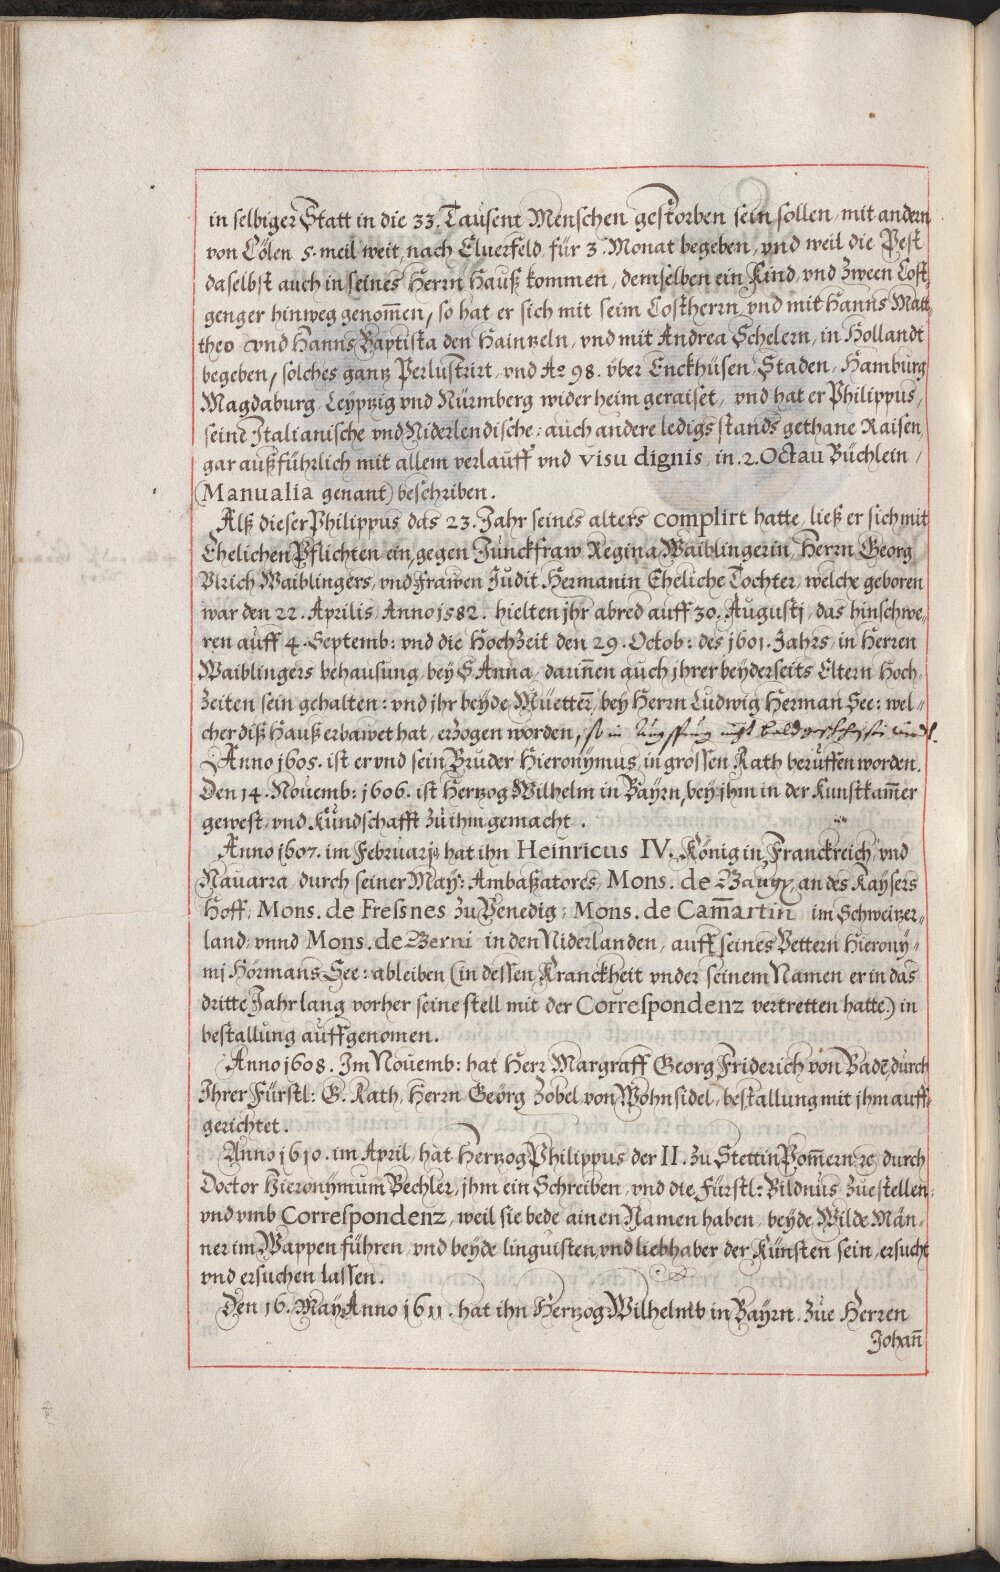 in selbiger Statt in die 33. Tausent Menschen gestorben sein sollen, mit andern
von Cölen 5. meil weit, nach Eluerfeld, für 3. Monat begeben, vnd weil die Pest
daselbst auch in seines Herrn Hauß kommen, demselben ein Kind, vnd zween Cost„
genger hinweg genom̄en, so hat er sich mit seim Costherrn vnd mit Hanns Matt„
theo vnd Hanns Baptista den Haintzeln, vnd mit Andrea Schelern, in Hollandt
begeben, solches gantz Perlustrirt, vnd Ao 98. vber Enckhüsen, Staden, Hamburg
Magdaburg, Leÿptzig vnd Nürmberg wider heim geraiset, vnd hat er Philippus,
seine Italianische vnd Niderlendische: auch andere ledigs stands gethane Raisen,
gar außführlich mit allem verlauff vnd visu dignis, in .2. Octau Büchlein,
(Manualia genant) beschriben.
Alß dieser Philippus das 23. Jahr seines alters complirt hatte, ließ er sich mit
Ehelichen Pflichten ein, gegen Junckfraw Regina Waiblingerin, Herrn Georg
Vlrich Waiblingers, vnd Frawen Judit Hermanin Eheliche Tochter, welche geboren
war den 22. Aprilis Anno 1582. hielten jhr abred auff 30. Augustj, das hinschwe„
ren auff 4. Septemb: vnd die Hochzeit den 29. Octob: des 1601. Jahrs, in Herren
Waiblingers behausung, beÿ S Anna, darin̄en auch jhrer beÿderseits Eltern Hoch„
zeiten sein gehalten: vnd jhr beÿde Müetter, beÿ Herrn Ludwig Herman See: wel„
cher diß Hauß erbawet hat, erzogen worden, so in
Anno 1605. ist er vnd sein Bruder Hieronÿmus, in grossen Rath beruffen worden.
Den 14. Nouemb: 1606. ist Hertzog Wilhelm in Baÿrn, beÿ jhm in der Kunstkam̄er
gewest, vnd Kundschafft zu ihm gemacht.
Anno 1607. im Februarij hat ihn Heinricus IV. König in Franckreich, vnd
Nauarra, durch seiner Maÿ: Ambaßatores, Mons. de Baugy, an des Kaÿsers
Hoff: Mons. de Fresnes zu Venedig: Mons. de Cam̄artin im Schweitzer„
land: vnnd Mons. de Berni in den Niderlanden, auff seines Vettern Hieronÿ„
mj Hörmans See: ableiben (in dessen Kranckheit vnder seinem Namen er in das
dritte Jahr lang vorher seine stell mit der Correspondenz vertretten hatte.) in
bestallung auffgenomen.
Anno 1608. Im Nouemb: hat Herr Margraff Georg Friderich von Badē, durch
Ihrer Fürstl: G. Rath, Herrn Georg Zobel, von Wohnsidel, bestallung mit jhm auff„
gerichtet.
Anno 1610. im April, hat Hertzog Philippus der II. zu Stettin Pom̄ern ꝛc durch
Doctor Hieronÿmum Bechler, jhm ein Schreiben, vnd die Fürstl: Bildnus zuestellen:
vnd vmb Correspondenz, weil sie bede ainen Namen haben, beÿde Wilde Män„
ner im Wappen führen, vnd beÿde linguisten, vnd liebhaber der Künsten sein, ersucht
vnd ersuchen lassen.
Den 16. Maÿ Anno 1611. hat ihn Hertzog Wilhelmb in Baÿrn, zue Herren
Johan̄